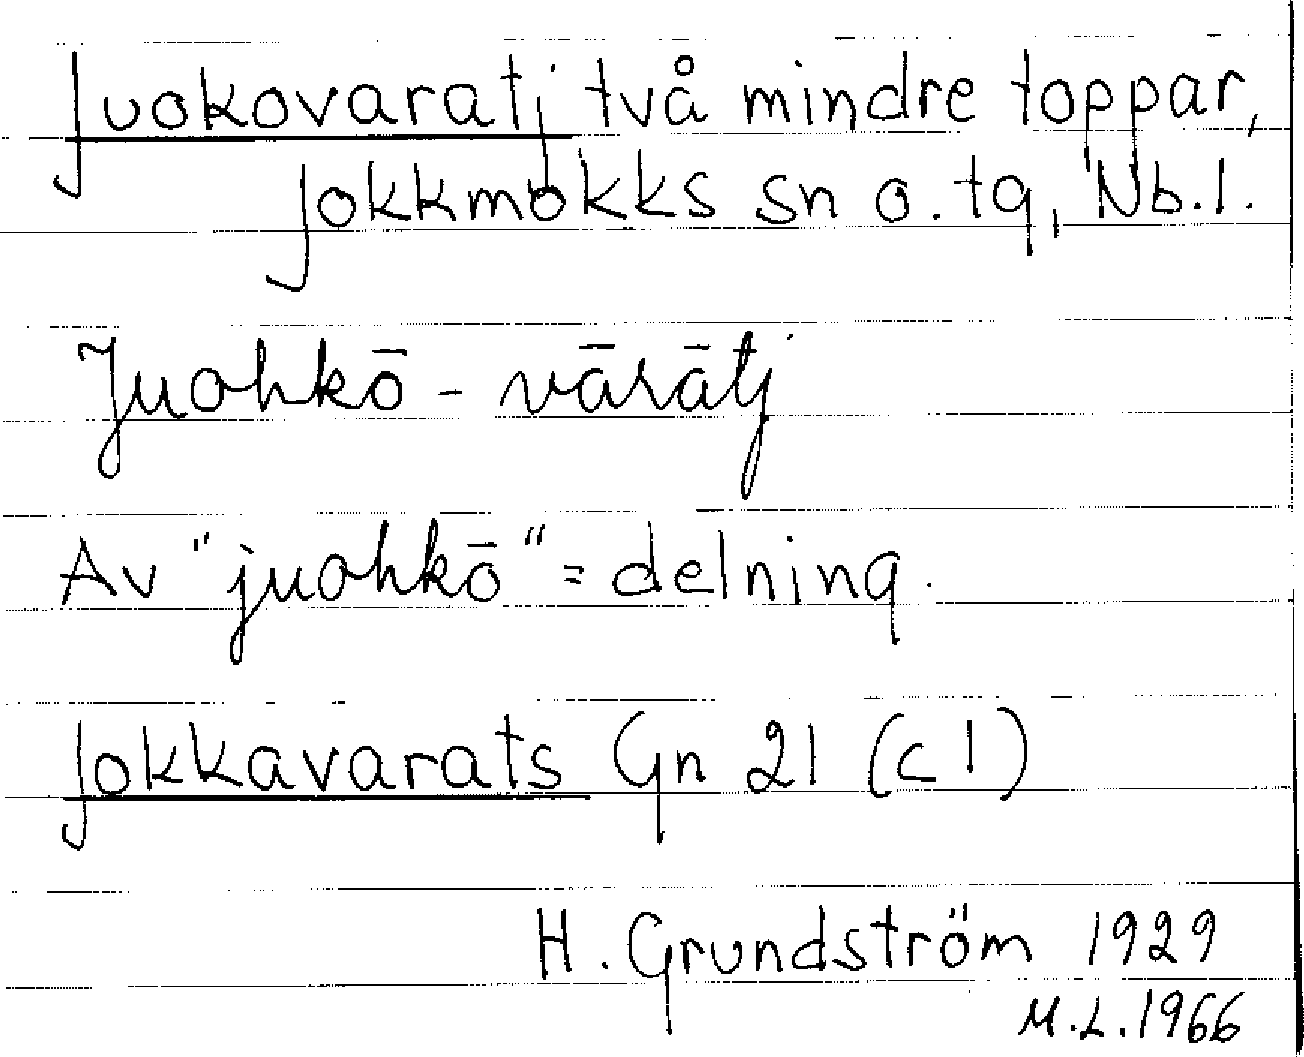 Juokovaratj två mindre toppar,
Jokkmokks sn o. tg, Nb.l.
Juohkō - vārātj
Av "juohkō" = delning.
Jokkavarats Gn 21 (c 1)
H. Grundström 1929
M.L. 1966